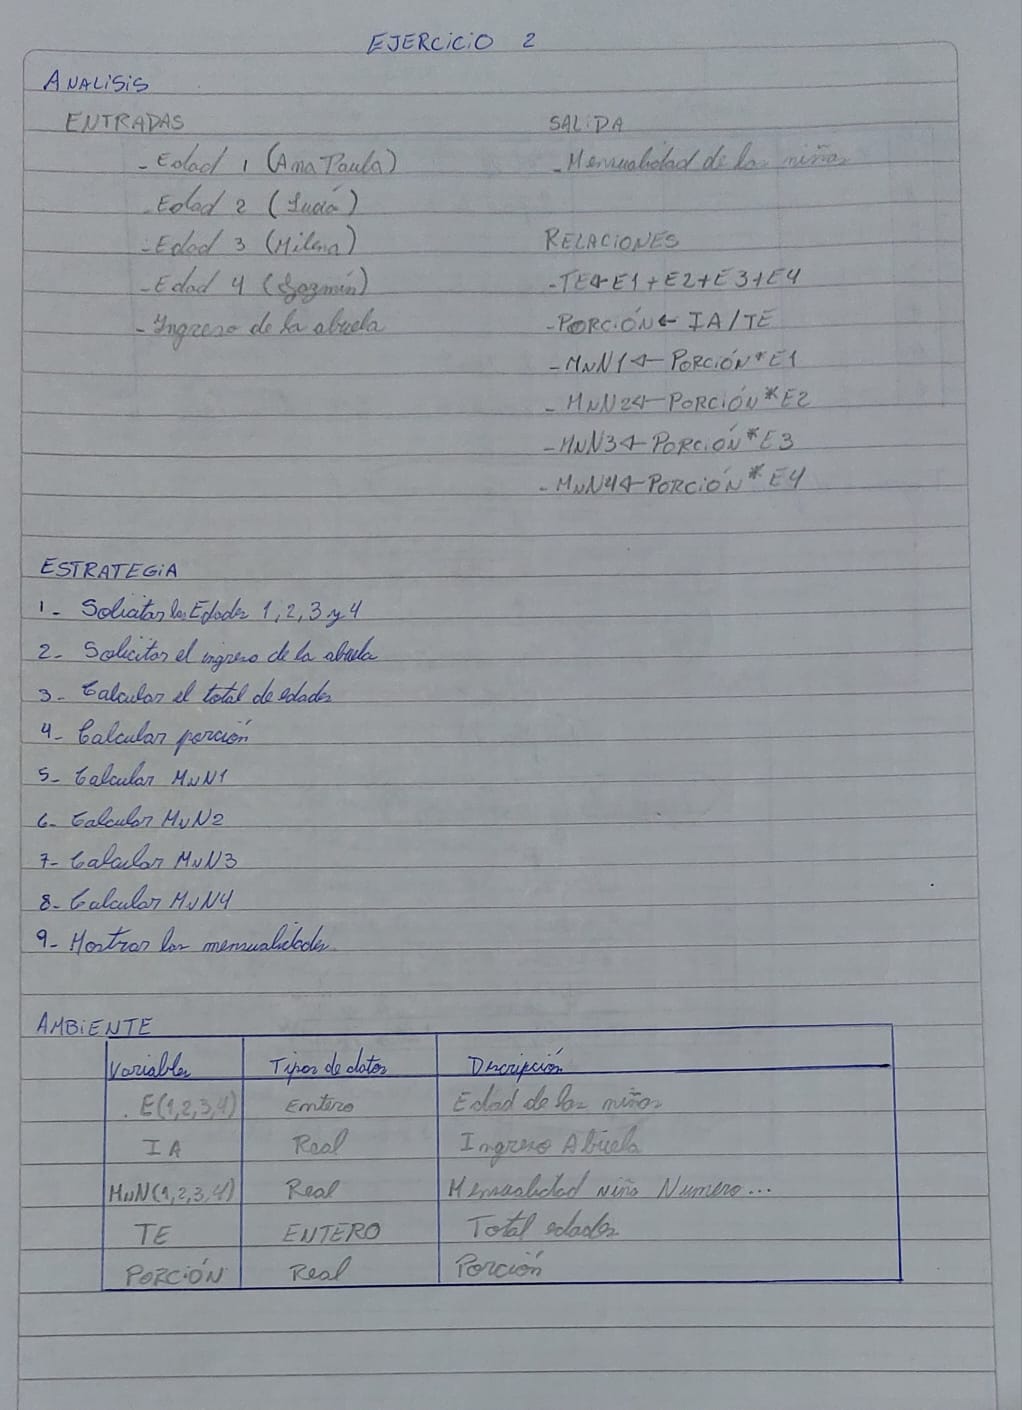 EJERCICIO 2
ANALISIS
ENTRADAS
- Edad 1 (Ana Paula)
- Edad 2 (Lucía)
- Edad 3 (Milena)
- Edad 4 (Jazmín)
- Ingreso de la abuela
SALIDA
- Mensualidad de las niñas
RELACIONES
- TE←E1+E2+E3+E4
- PORCIÓN← IA/TE
- MNN1← PORCIÓN*E1
- MNN2← PORCIÓN*E2
- MNN3← PORCIÓN*E3
- MNN4← PORCIÓN*E4
ESTRATEGIA
1- Solicitar las Edades 1, 2, 3 y 4
2- Solicitar el ingreso de la abuela
3- Calcular el total de edades
4- Calcular porción
5- Calcular MNN1
6- Calcular MNN2
7- Calcular MNN3
8- Calcular MNN4
9- Mostrar las mensualidades.
AMBIENTE
Variables Tipos de datos Descripción
E(1,2,3,4) Entero Edad de las niñas
IA Real Ingreso Abuela
MNN(1,2,3,4) Real Mensualidad Niña Numero...
TE ENTERO Total edades
PORCIÓN Real Porción